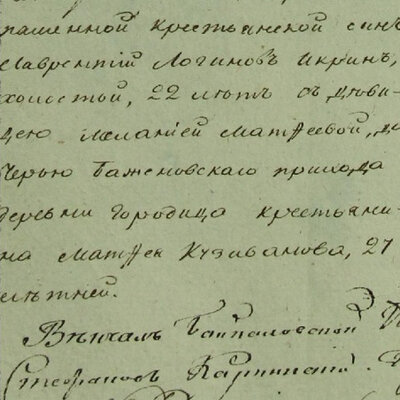 пашенной крестьянской сынъ
Лаврентiй Логиновъ Икринъ,
холостой, 22 лѣтъ съ дѣви-
цею Меланiей Матѳеевой, до-
черью Баженовскаго прихода
деревни Городища крестьяни-
на Матѳея Кузиванова, 21
лѣтней.
Вѣнчалъ
Стефановъ Карпинскiй.